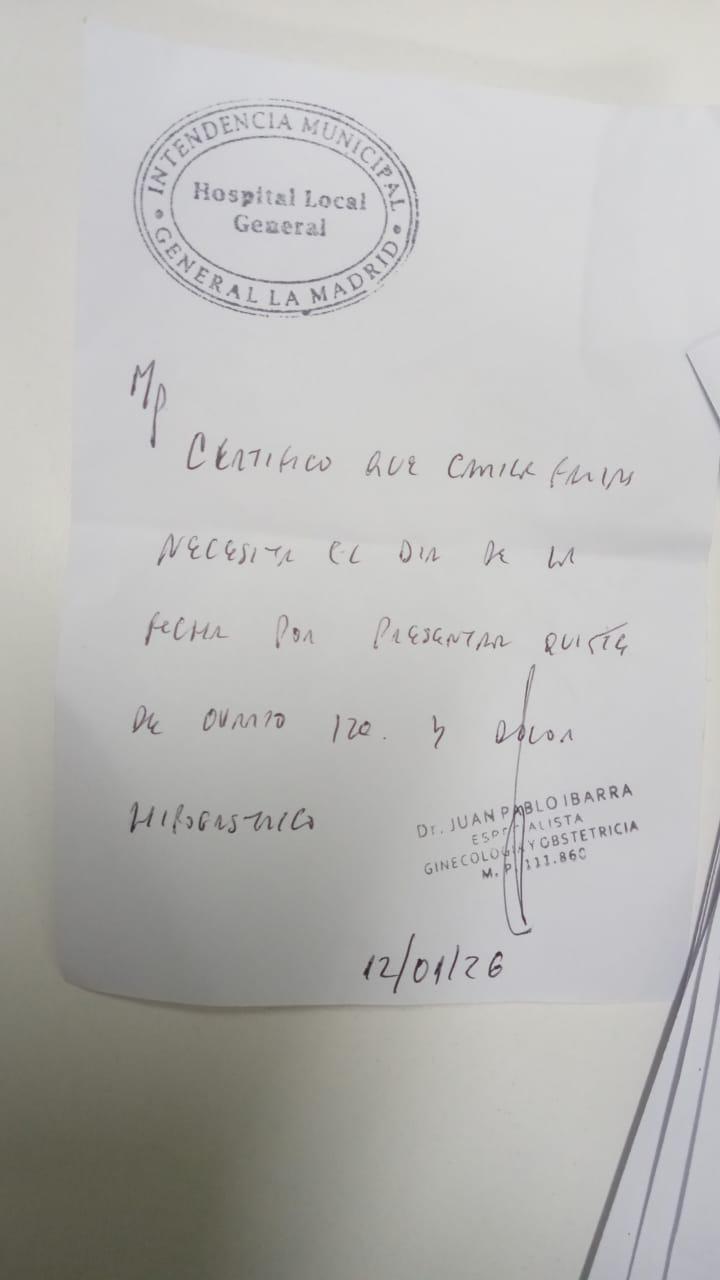 INTENDENCIA MUNICIPAL
Hospital Local
General
GENERAL LA MADRID
Mp
CERTIFICO QUE
NECESITA EL DIA DE LA
FECHA POR PRESENTAR QUISTE
DE OVARIO IZQ. Y DOLOR
HIPOGASTRICO
Dr. JUAN PABLO IBARRA
ESPECIALISTA
GINECOLOGIA Y OBSTETRICIA
M. P. 111.860
12/01/26